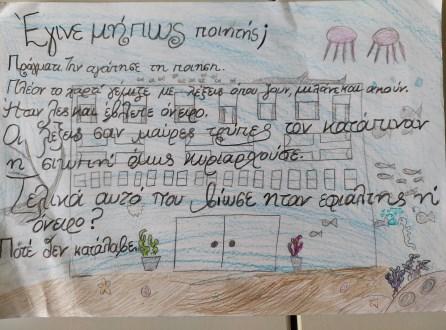 Έγινε μήπως ποιητής;
Πράγματι την αγάπησε τη ποίηση.
Πλέον το χαρτί γέμιζε με λέξεις όπου ζουν, μιλάνε και ακούν.
Ήταν λες και έβλεπε όνειρο.
Οι λέξεις σαν μαύρες τρύπες τον κατάπιναν
η σιωπή όμως κυριαρχούσε.
Τελικά αυτό που βίωσε ήταν εφιάλτης ή
όνειρο?
Ποτέ δεν κατάλαβε.